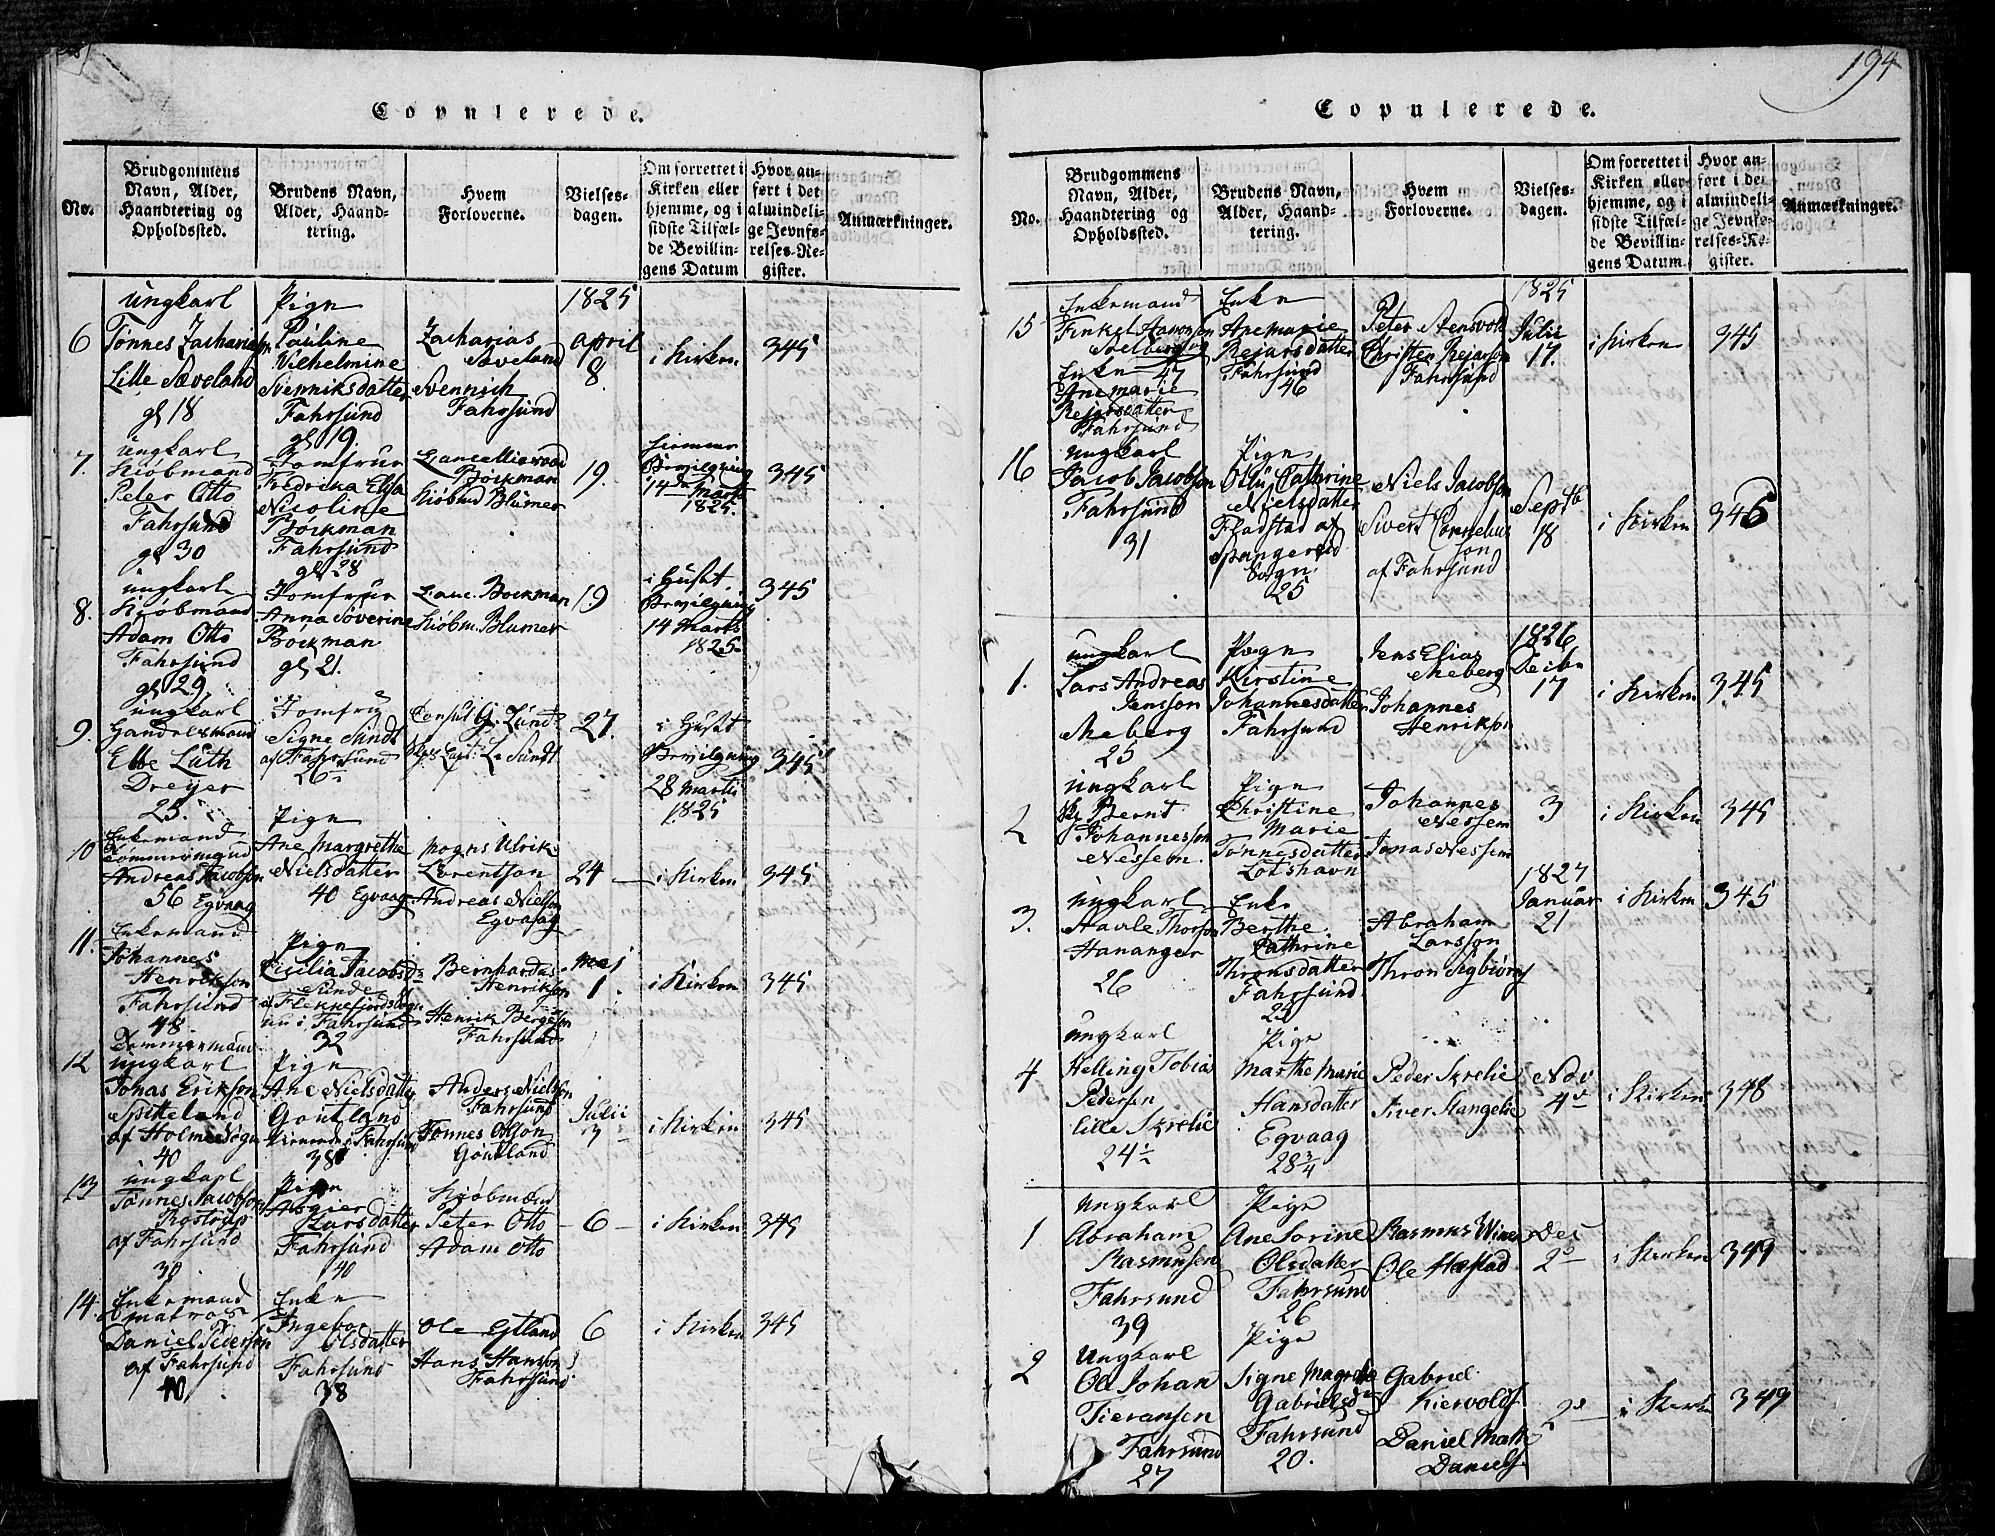 Copulerede.
No.
Brudgommens
Navn, Alder,
Haandtering og
Opholdssted.
Brudens Navn,
Alder, Haand-
tering.
Hvem
Forloverne.
Vielses-
dagen.
Om forrettet i
Kirken eller
hjemme, og i
sidste Tilfæl-
de Bevillin-
gens Datum
Hvor an-
ført i det
almindeli-
ge Jevnfø-
relses-Re-
gister.
Anmærkninger.
6
Ungkarl
Tønnes Zachariesen
Lille Sæveland
gl 18
Pige
Pauline
Wilhelmine
Svenniksdatter
Fahrsund
gl 19.
Zacharias
Sæveland
Svennich
Fahrsund
1825
April
8.
i Kirken
345
7.
Ungkarl
Kiøbmand
Peter Otto
Fahrsund
gl 30
Jomfrue
Fredrica Elisa
Nicoline
Bøckman
Fahrsund
gl 28
Bøckman
Kiøbmd Blumer
19.
hiemme
Bevilgning
14de Marts
1825.
345
8.
Ungkarl
Kiøbmand
Adam Otto
Fahrsund
gl 29
Jomfrue
Anna Søverine
Bøckman
gl 21.
Canc. Bøckman
Kiøbm. Blumer
19
i Huset
Bevilgning
14 Marts
1825
345
9.
Ungkarl
Handelsmand
Ebbe Lüth
Dreyer
25.
Jomfru
Signe Sundt
af Fahrsund
26
Consul G. Lund
L. Sundt
27.
i Huset
Bevilgning
28 Marts
1825
345
10
Enkemand
Tømmermand
Andreas Jacobsen
56 Egvaag
Pige
Ane Margrethe
Nielsdatter
40 Egvaag
Mogns Ulrik
Lorentson
Andreas Nielsen
Egvaag
24
i Kirken
345
11.
Enkemand
Johannes
Henrikson
Fahrsund
48
Pige
Cicilia Jacobsd
Sunde
af Flekkefjords Sogn
nu i Fahrsund
32
Bernhardus
Henrikson
Henrik Bergeson
Fahrsund
Maj
1.
i Kirken
345
12
Tømmermand
Ungkarl
Jonas Erikson
Spikeland
af Holme Sogn
40
Pige
Ane Nielsdatter
Goutland
Fahrsund
38
Anders Nielson
Fahrsund
Tønnes Olson
Goutland
Julii
3
i Kirken
345
13
Ungkarl
Tønnes Jacobson
Rostrup
af Fahrsund
30
Pige
Asgier
Larsdatter
Fahrsund
40
Kiøbmænd
Peter Otto
Adam Otto
6
i Kirken
345
14.
Enkemand
Matros
Daniel Pederson
af Fahrsund
40
Enke
Ingebor
Olsdatter
Fahrsund
38
Ole Estland
Hans Hanson
Fahrsund
6
i Kirken
345
194
Copulerede.
No.
Brudgommens
Navn, Alder,
Haandtering og
Opholdssted.
Brudens Navn,
Alder, Haand-
tering.
Hvem
Forloverne.
Vielses-
dagen.
Om forrettet i
Kirken eller
hjemme, og i
sidste Tilfæl-
de Bevillin-
gens Datum.
Hvor an-
ført i det
almindeli-
ge Jevnfø-
relses-Re-
gister.
Anmærkninger.
15
Enkemand
Finkel Aanonsen
Stelberg og
Enke 47
Anemarie
Rejersdatter
Fahrsund
Enke
Anemarie
Rejarsdatter
Fahrsund
46
Peter Stensvold
Christen Rejarson
Fahrsund
1825
Julii
17.
i Kirken
345
16
Ungkarl
Jacob Jacobson
Fahrsund
31
Pige
Oslu Cathrine
Nielsdatter
Fladstad af
Spangereid
Sogn
25
Niels Jacobson
Sivert Cornelius
son
af Fahrsund
Septb
18
i Kirken
345
1.
Ungkarl
Lars Andreas
Jensson
Meberg
25
Pige
Kirstine
Johannesdatter
Fahrsund
Jens Elias
Meberg
Johannes
Henrikson
1826
Decibr
17
i Kirken
345
2
Ungkarl
Bernt
Johannesson
Nessem.
Pige
Christine
Marie
Tønnesdatter
Lotshavn
Johannes
Nessem
Jonas Nessem
3
i Kirken
345
3.
Ungkarl
Aavle Thorson
Hananger
26
Enke
Berthe
Cathrine
Thronsdatter
Fahrsund
Abraham
Larsson
Thron Sigbiørns
1827
Januar
21
i Kirken
345
4
Ungkarl
Helling Tobias
Pedersen
Lille Skrelie
24½
Pige
Marthe Marie
Hansdatter
Egvaag
28¾
Peder Skrelie
Siver Stangelie
Nov
4de
i Kirken
348
1
Ungkarl
Abraham
Rasmusen
Fahrsund
39
Pige
Ane Sorine
Olsdatter
Fahrsund
26
Rasmus
Ole Hæstad
Dec
2de
i Kirken
349
2
Ungkarl
Ole Johan
Tieransen
Fahrsund
27
Pige
Signe Magrethe
Gabrielsd
Fahrsund
20.
Gabriel
Kiervold
Daniel Math
Daniels
2de
i Kirken
349